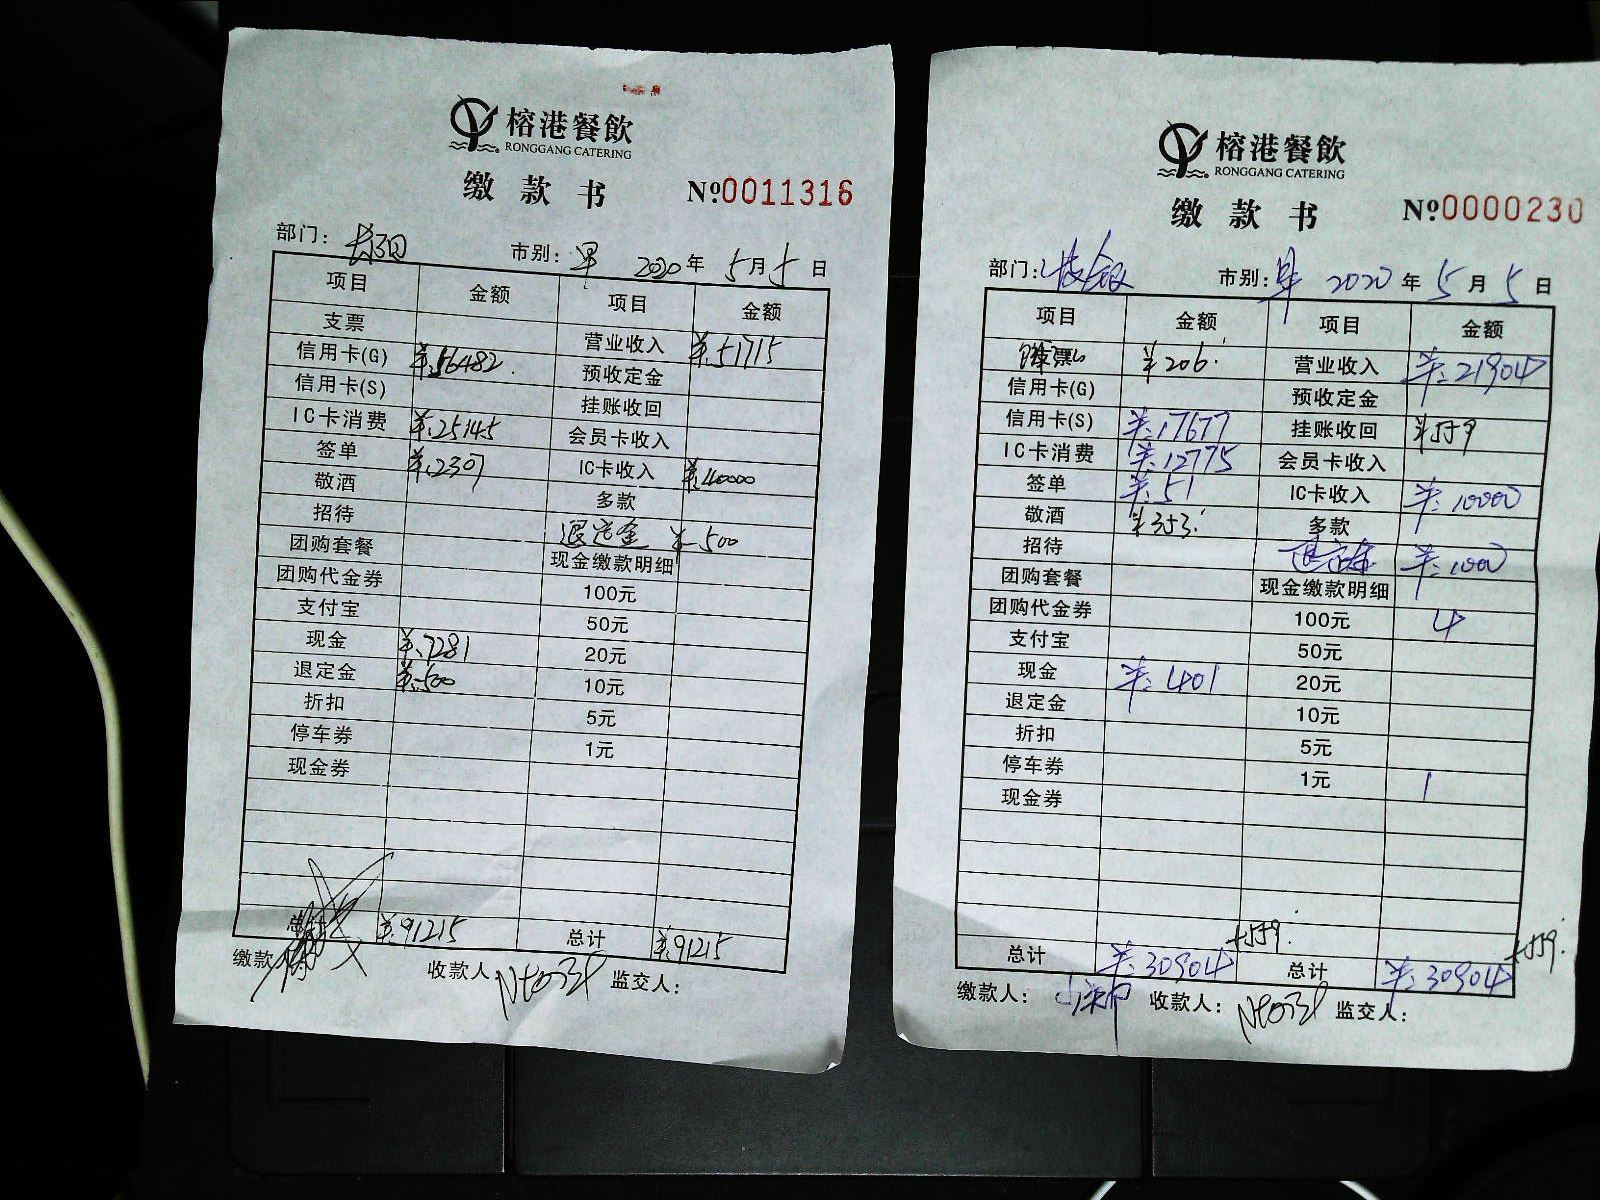 榕港餐飲
RONGGANG CATERING
缴款书 №0011316
部门: 市别: 早 2020年5月5日
项目 金额 项目 金额
支票 营业收入 ¥:51715
信用卡(G) ¥:56482. 预收定金
信用卡(S) 挂账收回
IC卡消费 ¥:25145 会员卡收入
签单 ¥:2307 IC卡收入 ¥:40000
敬酒 多款
招待 退定金 ¥-500
团购套餐 现金缴款明细
团购代金券 100元
支付宝 50元
现金 ¥:7281 20元
退定金 ¥:-500 10元
折扣 5元
停车券 1元
现金券
¥:91215 总计 ¥:91215
缴款 收款人: 监交人:
榕港餐飲
RONGGANG CATERING
缴款书 №0000230
部门: 市别: 早 2020年5月5日
项目 金额 项目 金额
¥206. 营业收入 ¥:21904
信用卡(G) 预收定金
信用卡(S) ¥:17677 挂账收回 ¥559
IC卡消费 ¥:12775 会员卡收入
签单 ¥:51 IC卡收入 ¥:10000
敬酒 ¥353. 多款
招待 退定金 ¥:1000
团购套餐 现金缴款明细
团购代金券 100元 4
支付宝 50元
现金 ¥:401 20元
退定金 10元
折扣 5元
停车券 1元 1
现金券
+559. +559.
总计 ¥:30904 总计 ¥:30904
缴款人: 收款人: 监交人: